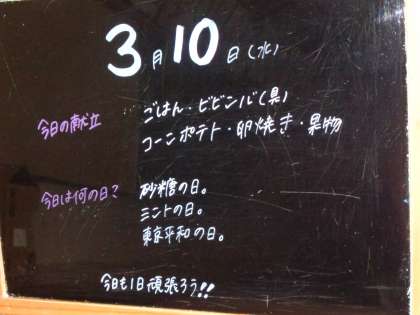 3月10日(水)
今日の献立 ごはん・ビビンバ(具)
コーンポテト・卵焼き・果物
今日は何の日? 砂糖の日。
ミントの日。
東京平和の日。
今日も1日頑張ろう!!